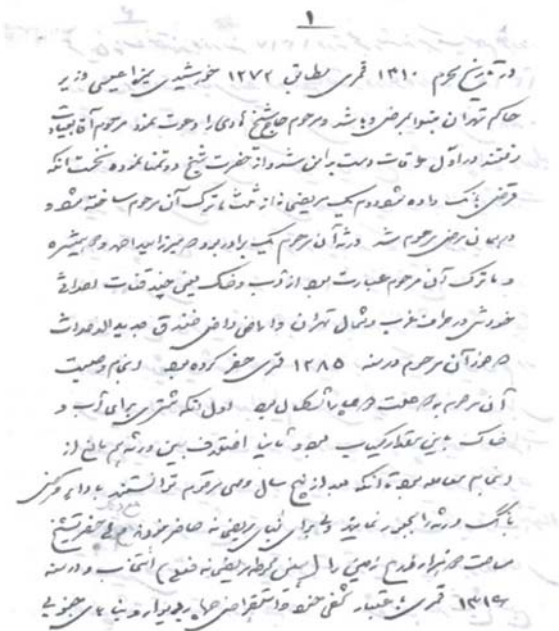 ۱
در تاریخ محرم ۱۳۱۰ قمری مطابق ۱۲۷۲ خورشیدی میرزا عیسی وزیر
حاکم تهران مبتلا بمرض وبا شد و مرحوم حاج شیخ هادی را دعوت نمود مرحوم آقا بعیادت
رفتند در اول ملاقات دست بدامن شد و از حضرت شیخ دو تمنا نموده نخست آنکه
قرض بانک داده شود دوم یک مریضخانه از ثلث ماترک آن مرحوم ساخته شود
و بهمان مرض مرحوم شد ورثه آن مرحوم یک برادر بود میرزا سید احمد و همشیره
و ماترک آن مرحوم عبارت بود از آب و خاک یعنی چند قنات احداثی
خودش در طرف غرب و شمال تهران و اراضی داخل خندق جدید الاحداث
که خود آن مرحوم در سنه ۱۲۸۵ قمری حفر کرده بود انجام وصیت
آن مرحوم به دو علت دچار اشکال بود اول آنکه مشتری برای آب و
خاک باین مقدار کمیاب بود و ثانیا اختلاف بین ورثه هم مانع از
انجام معامله بود تا آنکه بعد از پنج سال وصی مرحوم توانستند با ادای قرض
بانک ورثه را مجبور نمایند ولی برای بنای مریضخانه حاضر نبودند حضرت شیخ
مساحت ده هزار ذرع زمین را (یعنی محوطه مریضخانه فعلی) انتخاب و در سنه
۱۳۱۶ قمری باعتبار شخصی خود و استقراض بدیوار و بنای جنوبی